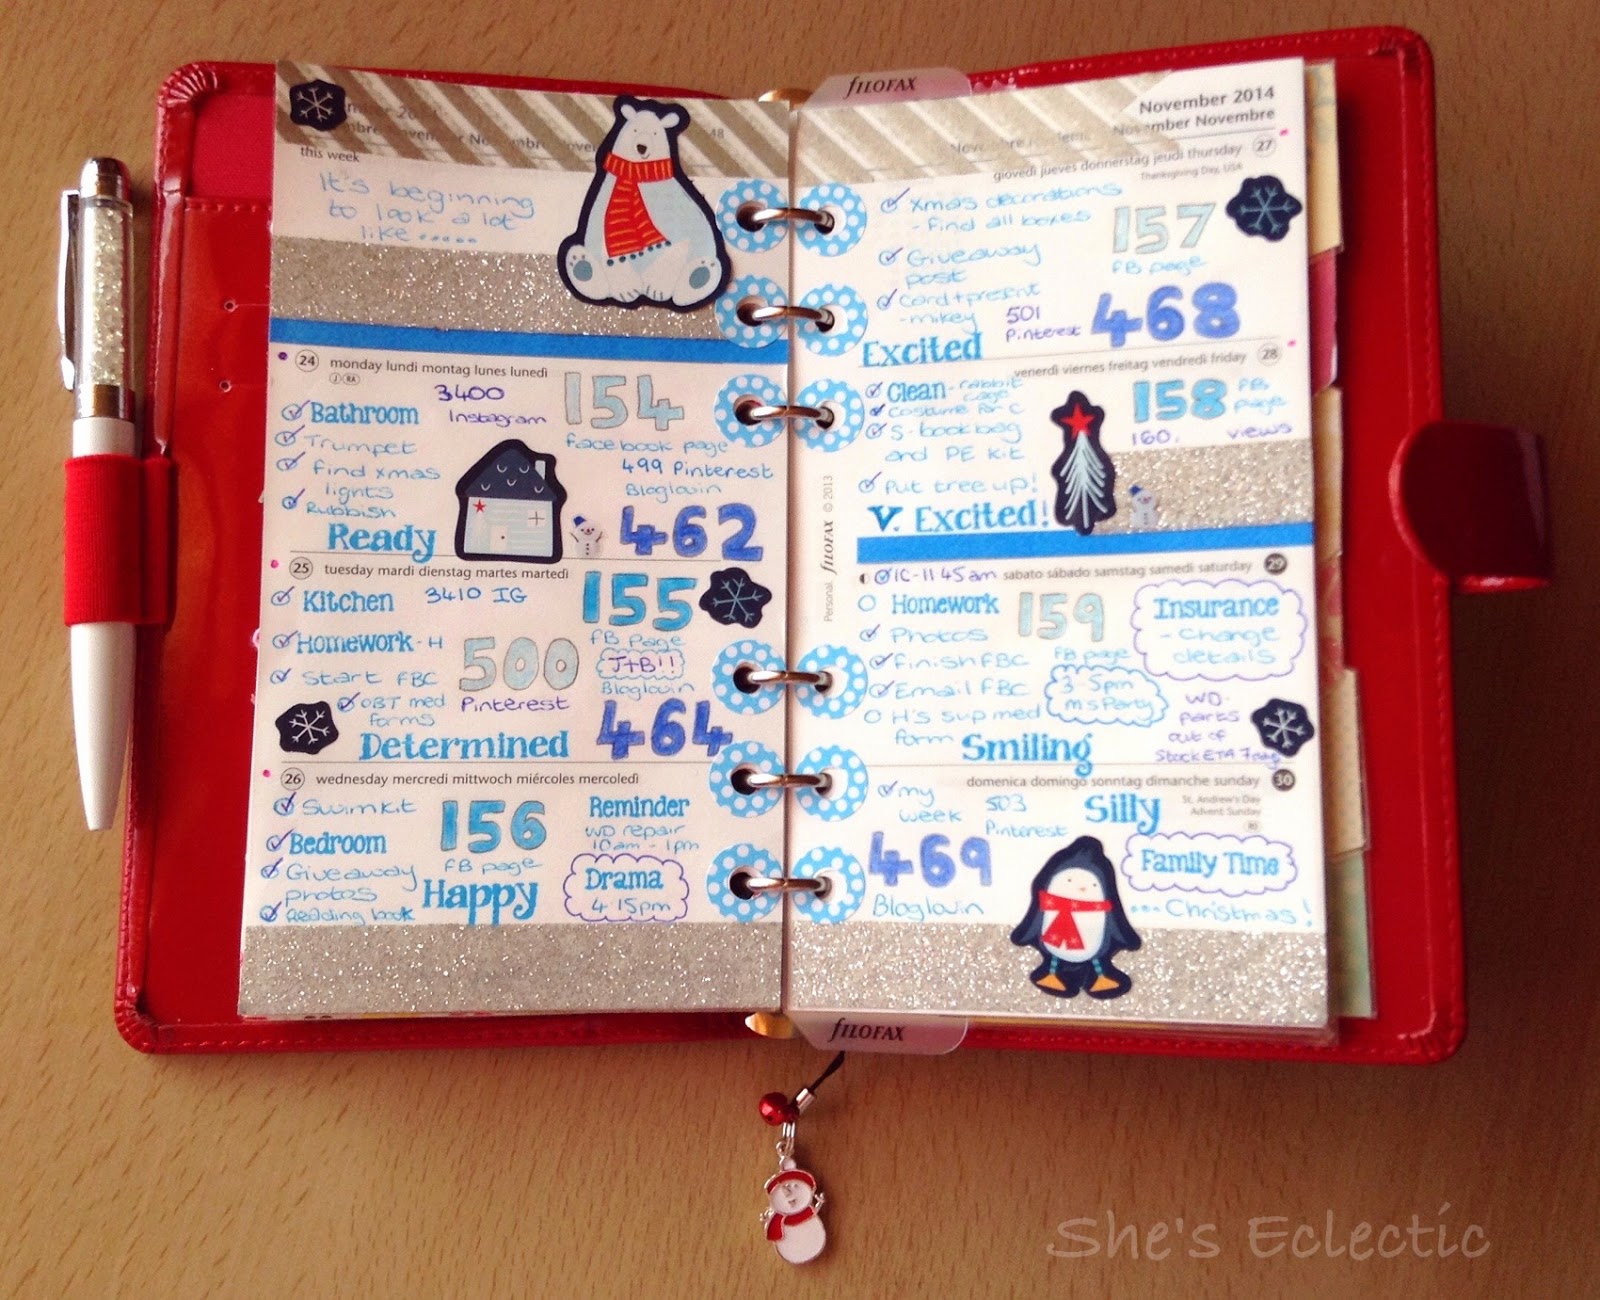 FILOFAX
this week
It's beginning
to look a lot
like.....
24 monday lundi montag lunes lunedì
Bathroom
3400
Instagram
154
facebook page
Trumpet
find xmas
lights
Rubbish
499 Pinterest
Bloglovin
462
Ready
25 tuesday mardi dienstag martes martedì
Kitchen
3410 IG
155
FB Page
Homework - H
500
Pinterest
J+B!!
Start FBC
Bloglovin
OBT med
forms
464
Determined
26 wednesday mercredi mittwoch miércoles mercoledì
Swim kit
156
FB page
Reminder
WD repair
10am - 1pm
Bedroom
Giveaway
photos
Reading book
Happy
Drama
4.15pm
November 2014
November Novembre
giovedì jueves donnerstag jeudi thursday 27
Thanksgiving Day, USA
Xmas decorations
- find all boxes
157
FB page
Giveaway
post
Card + present
- mikey
501
Pinterest
468
Excited
venerdì viernes freitag vendredi friday 28
Clean - rabbit
cage
Costume for C
158
FB
page
S - book bag
and PE kit
160. views
Put tree up!
V. Excited!
Personal FILOFAX © 2013
sabato sábado samstag samedi saturday 29
Homework
159
FB page
Insurance
- Change
details
Photos
Finish FBC
Email FBC
3-5pm
Ms Party
H's sup med
form
WD
parts
out of
Stock ETA 7days
Smiling
domenica domingo sonntag dimanche sunday 30
St. Andrew's Day
Advent Sunday
my
week
503
Pinterest
Silly
469
Bloglovin
Family Time
...Christmas!
FILOFAX
She's Eclectic